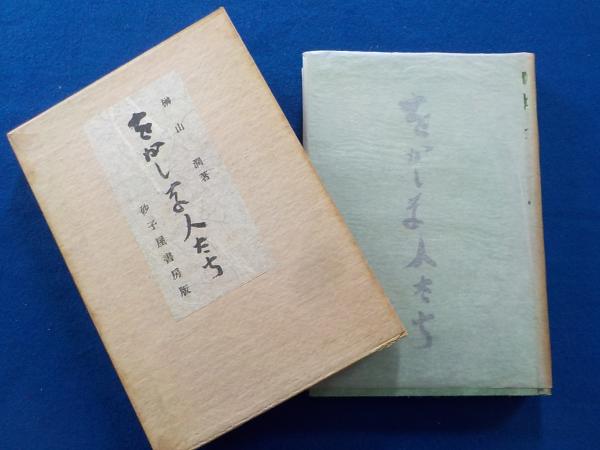 榊山潤著
をかしな人たち
砂子屋書房版
をかしな人たち